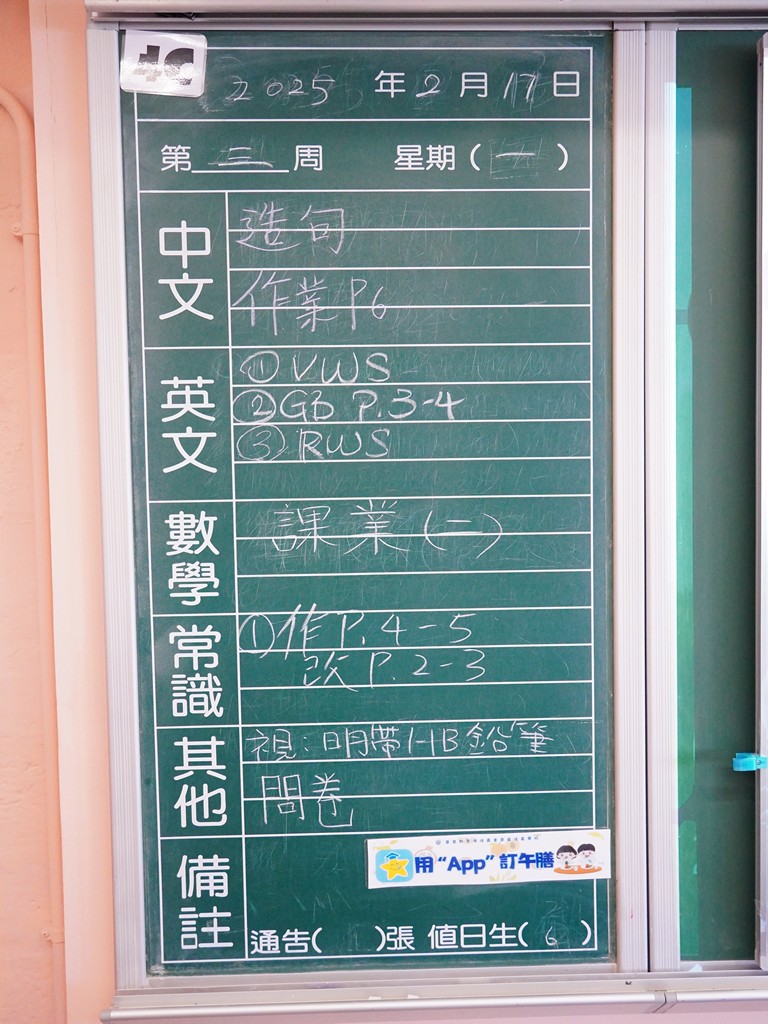 4C
2025 年 2 月 17 日
第 二 周 星期 ( 一 )
中文
造句
作業 P6
英文
① VWS
② GB P.3-4
③ RWS
數學
課業(二)
常識
① 作 P.4-5
改 P.2-3
其他
視:明帶HB鉛筆
問卷
備註
用“App”訂午膳
通告( )張 值日生( 6 )